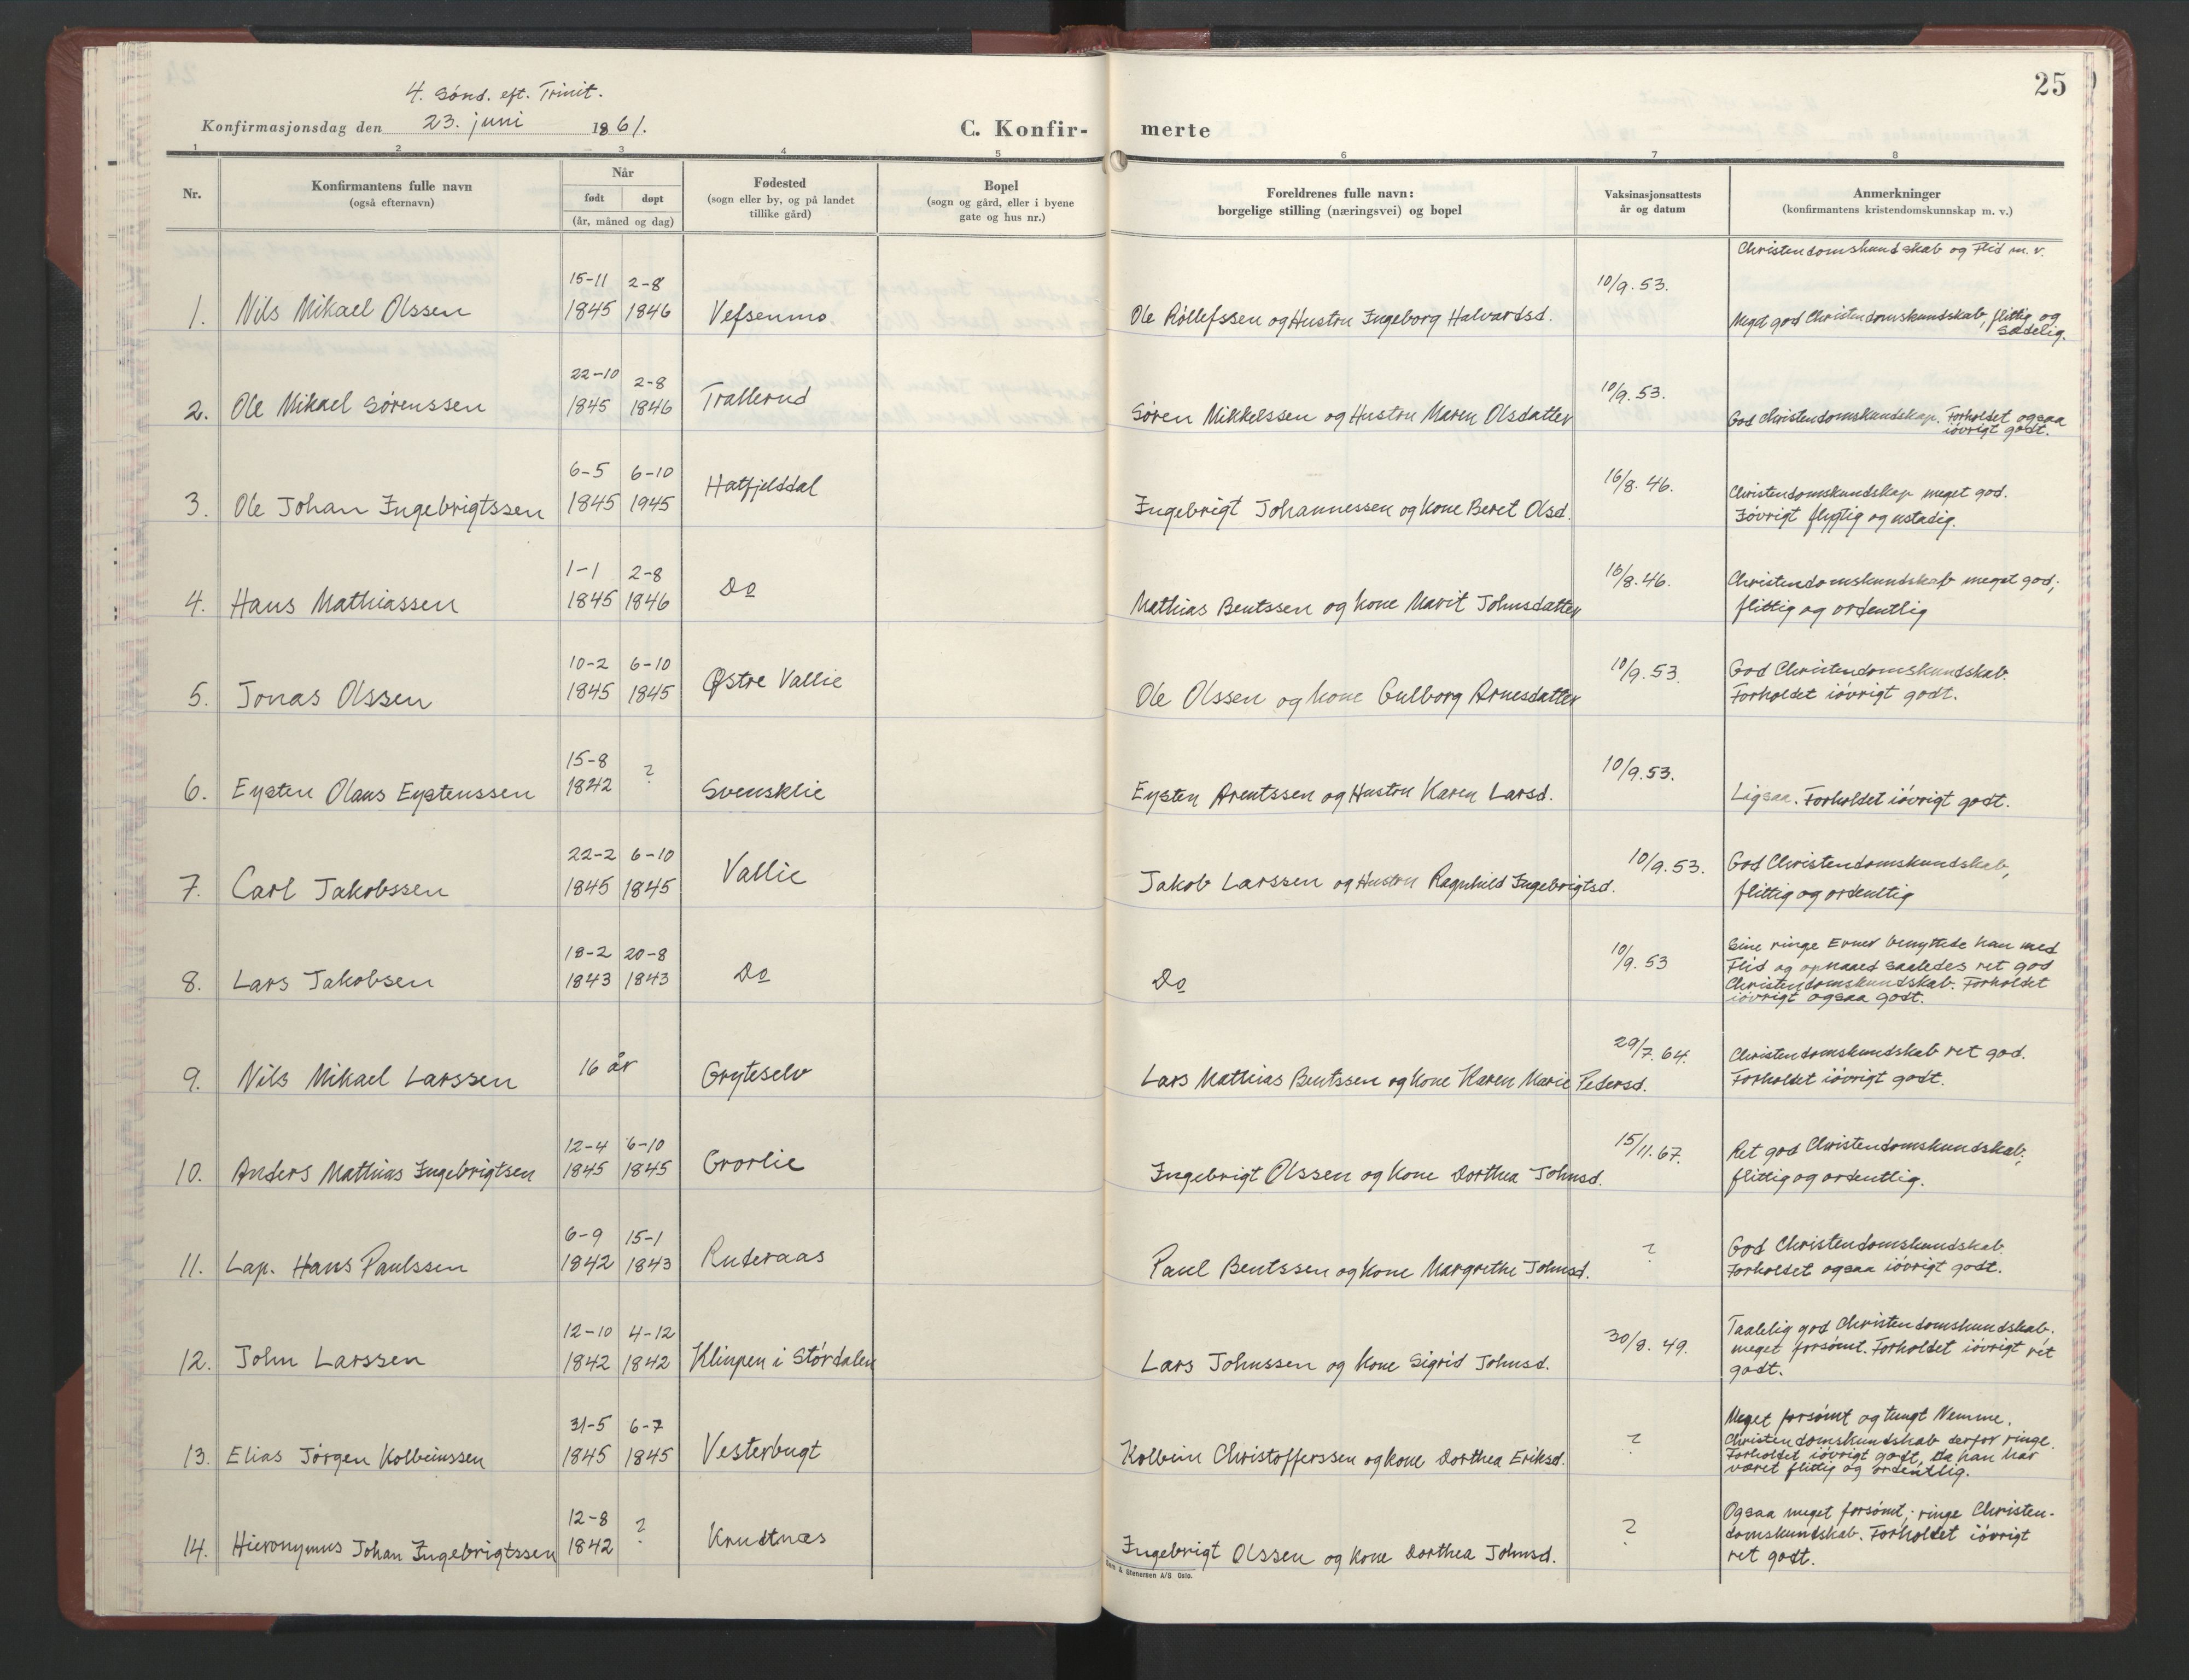 25
4. Sønd. eft. Trinit.
Konfirmasjonsdag den 23. juni 1861.
C. Konfir- merte
1 2 3 4 5 6 7 8
Nr.
Konfirmantens fulle navn
(også efternavn)
Når
født døpt
(år, måned og dag)
Fødested
(sogn eller by, og på landet
tillike gård)
Bopel
(sogn og gård, eller i byene
gate og hus nr.)
Foreldrenes fulle navn:
borgelige stilling (næringsvei) og bopel
Vaksinasjonsattests
år og datum
Anmerkninger
(konfirmantens kristendomskunnskap m. v.)
Christendomskundskab og Flid m. v.
15-11 2-8 10/9. 53.
1. Nils Mikael Olssen 1845 1846 Vefsenmo. Ole Róllefssen og Hustru Ingeborg Halvardsd. Meget god Christendomskundskab, flittig og
sædelig.
22-10 2-8 10/9. 53.
2. Ole Mikael Sørenssen 1845 1846 Trallerud Søren Mikkelssen og Hustru Maren Olsdatter God Christendomskundskap. Forholdet ogsaa
iövrigt godt.
6-5 6-10 Hatfjelddal 16/8. 46. Christendomskundskap meget god.
3. Ole Johan Ingebrigtssen 1845 1945 Ingebrigt Johannessen og kone Beret Olsd. Iövrigt flygtig og ustadig.
1-1 2-8 Do 16/8. 46. Christendomskundskab meget god;
4. Hans Mathiassen 1845 1846 Mathias Bentssen og kone Marit Johnsdatter flittig og ordentlig
10-2 6-10 Østre Vallie 10/9. 53. God Christendomskundskab.
5. Jonas Olssen 1845 1845 Ole Olssen og kone Gulborg Arnesdatter Forholdet iövrigt godt.
15-8 ? 10/9. 53.
6. Eysten Olaus Eystenssen 1842 Svensklie Eysten Arentssen og Hustru Karen Larsd. Ligsaa. Forholdet iövrigt godt.
22-2 6-10 Vallie 10/9. 53. God Christendomskundskab,
7. Carl Jakobssen 1845 1845 Jakob Larssen og Hustru Ragnhild Ingebrigtsd. flittig og ordentlig
18-2 20-8 10/9. 53 Sine ringe Evner benyttede han med
8. Lars Jakobsen 1843 1843 Do Do Flid og opnaaed saaledes ret god
Christendomskundskab. Forholdet
iövrigt ogsaa godt.
29/7. 64. Christendomskundskab ret god.
9. Nils Mikael Larssen 16 år Gryteselv Lars Mathias Bentssen og kone Karen Marie Pedersd. Forholdet iövrigt godt.
12-4 6-10 15/11. 67. Ret god Christendomskundskab;
10. Anders Mathias Ingebrigtsen 1845 1845 Grorlie Ingebrigt Olssen og kone Dorthea Johnsd. flittig og ordentlig.
6-9 15-1 ? God Christendomskundskab.
11. Lap. Hans Paulssen 1842 1843 Ruderaas Paul Bentssen og kone Margrethe Johnsd. Forholdet ogsaa iövrigt godt.
12-10 4-12 30/8. 49. Taalelig god Christendomskundskab.
12. John Larssen 1842 1842 Klinpen i Stördalen Lars Johnssen og kone Sigrid Johnsd. meget forsömt. Forholdet iövrigt ret
godt.
31-5 6-7 ? Meget forsömt og tungt Nemme.
13. Elias Jörgen Kolbeinssen 1845 1845 Vesterbugt Kolbein Christofferssen og kone Dorthea Eriksd. Christendomskundskab derfor ringe.
Forholdet iövrigt godt, da han har
været flittig og ordentlig.
12-8 ? ? Ogsaa meget forsömt; ringe Christen-
14. Hieronymus Johan Ingebrigtssen 1842 Knudtnæs Ingebrigt Olssen og kone Dorthea Johnsd. domskundskab. Forholdet iövrigt
ret godt.
& Stenersen A/S Oslo.